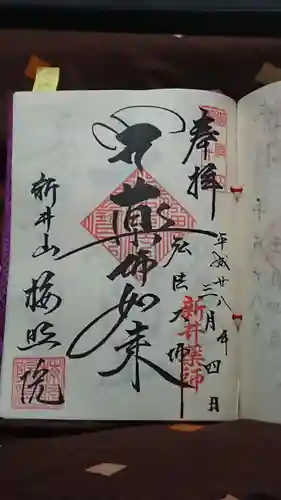 奉拝
平成廿八年三月四日
弘法大師
新井薬師
薬師如来
新井山
梅照院